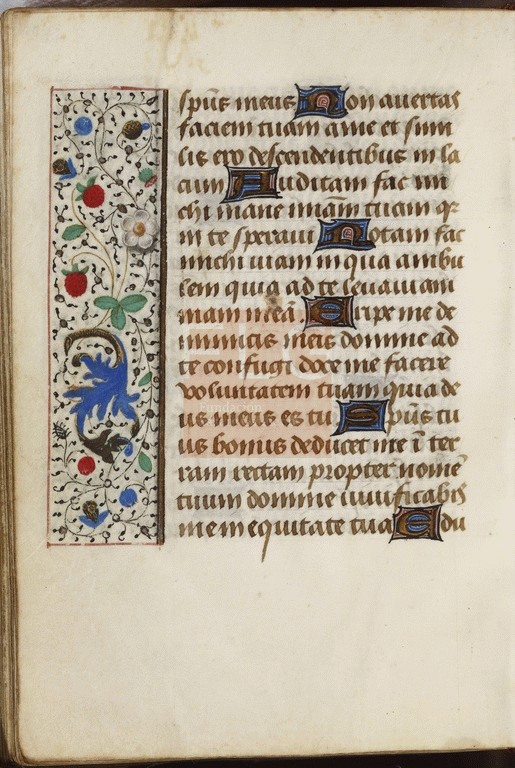 spūs meus Non auertas
faciem tuam a me et simi
lis ero descendentibus in la
cum Auditam fac mi
chi mane miām tuam qr
in te speraui Notam fac
michi uiam in qua ambu
lem quia ad te leuaui ani
mam meā. Eripe me de
inimicis meis domine ad
te confugi doce me facere
voluntatem tuam quia de
us meus es tu Spūs tu
us bonus deducet me ī ter
ram rectam propter nomē
tuum domine uiuificabis
me in equitate tua Edu